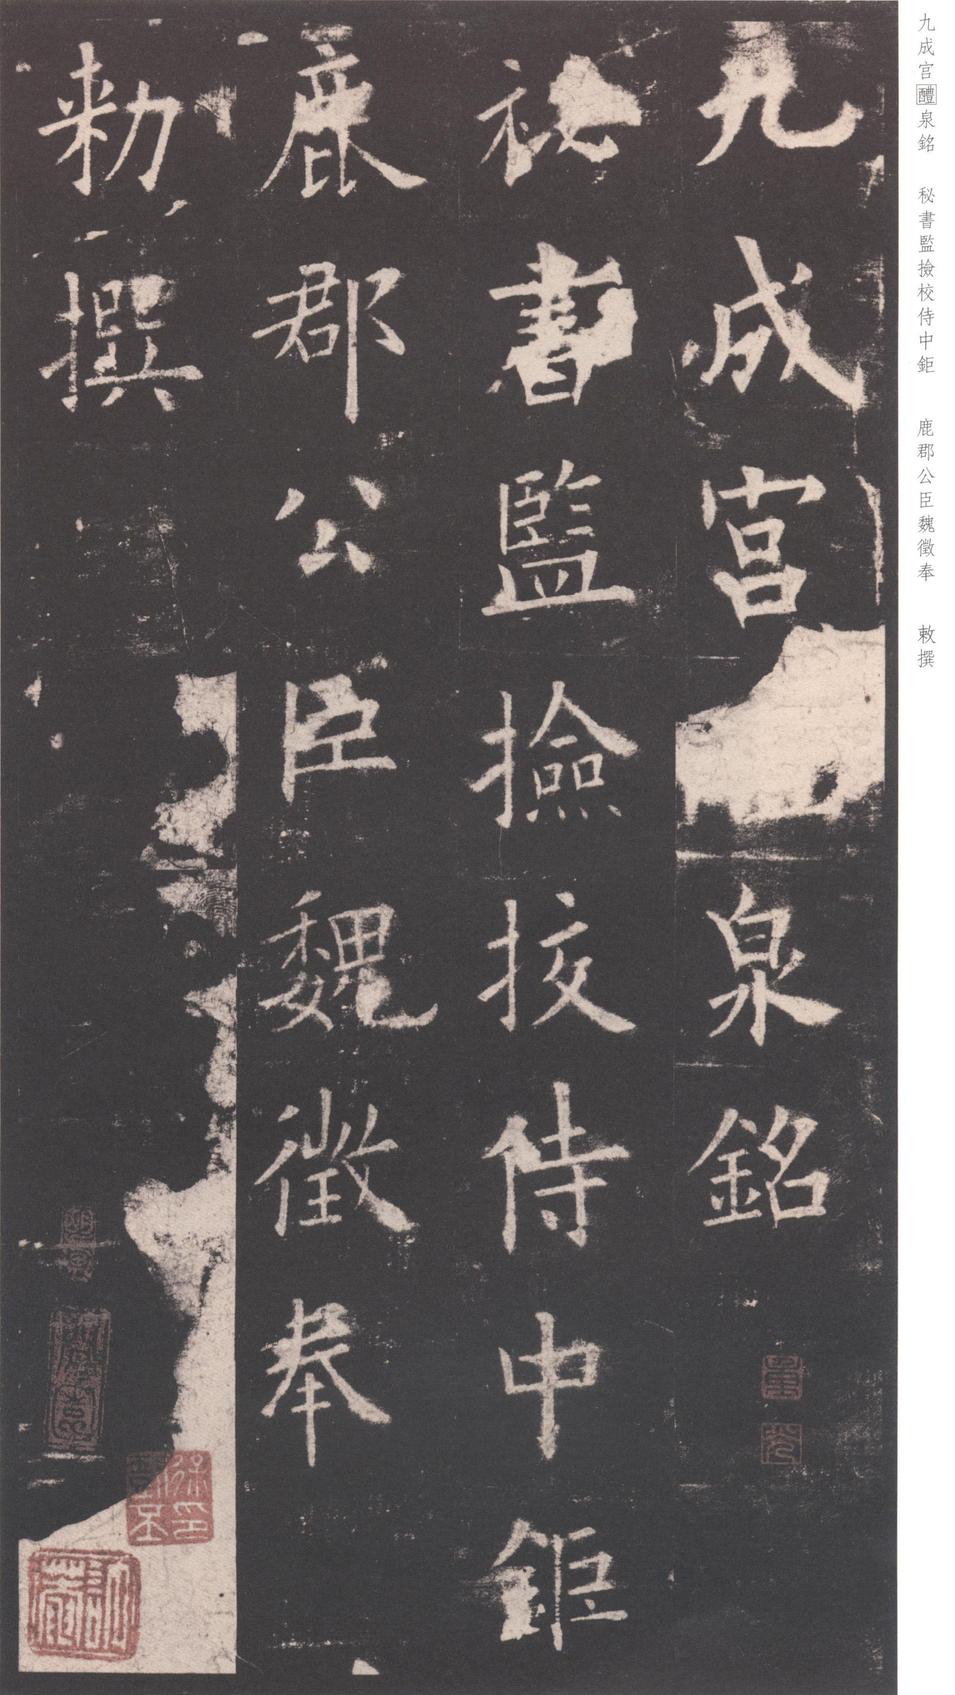 九成宮醴泉銘　秘書監撿校侍中鉅　鹿郡公臣魏徵奉　敕撰
九成宮泉銘
秘書監撿挍侍中鉅
鹿郡公臣魏徵奉
勑撰